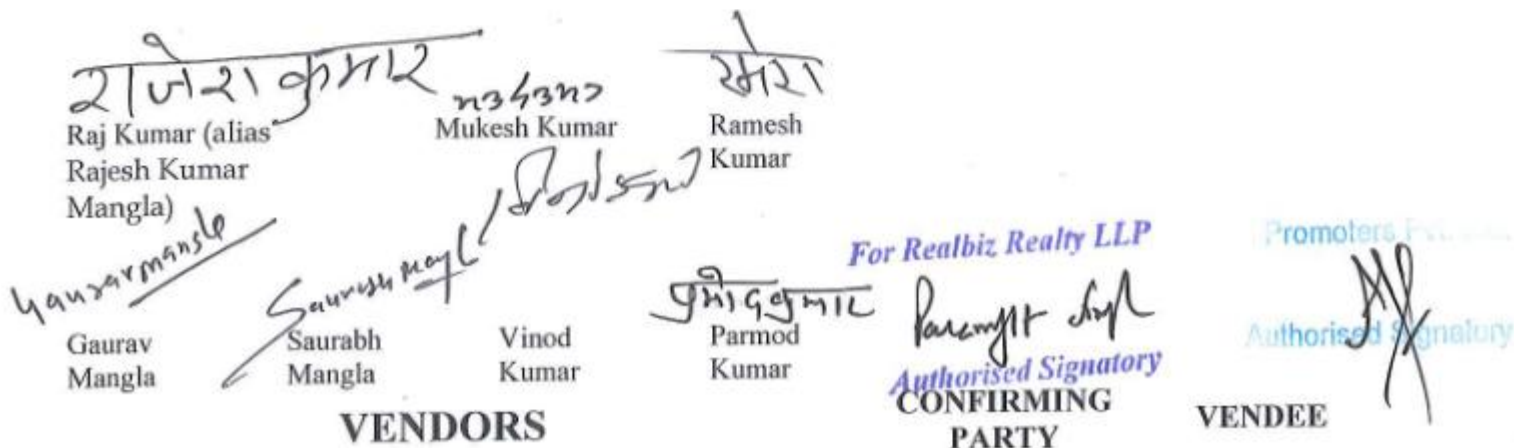 राजेश कुमार
Raj Kumar (alias
Rajesh Kumar
Mangla)
Mukesh Kumar
रमेश
Ramesh
Kumar
Gaurav Mangla
Gaurav
Mangla
Saurabh Mangl
Saurabh
Mangla
Vinod
Kumar
प्रमोद कुमार
Parmod
Kumar
VENDORS
For Realbiz Realty LLP
Paramjit Singh
Authorised Signatory
CONFIRMING
PARTY
Promoters Pvt.
Authorised Signatory
VENDEE